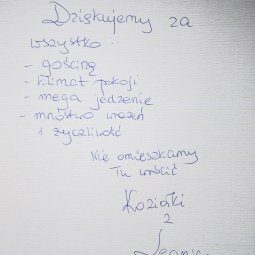 Dziękujemy za
wszystko:
- gościnę
- klimat pokoji
- mega jedzenie
- mnóstwo wrażeń
i życzliwość
Nie omieszkamy
Tu wrócić
Koziołki
z